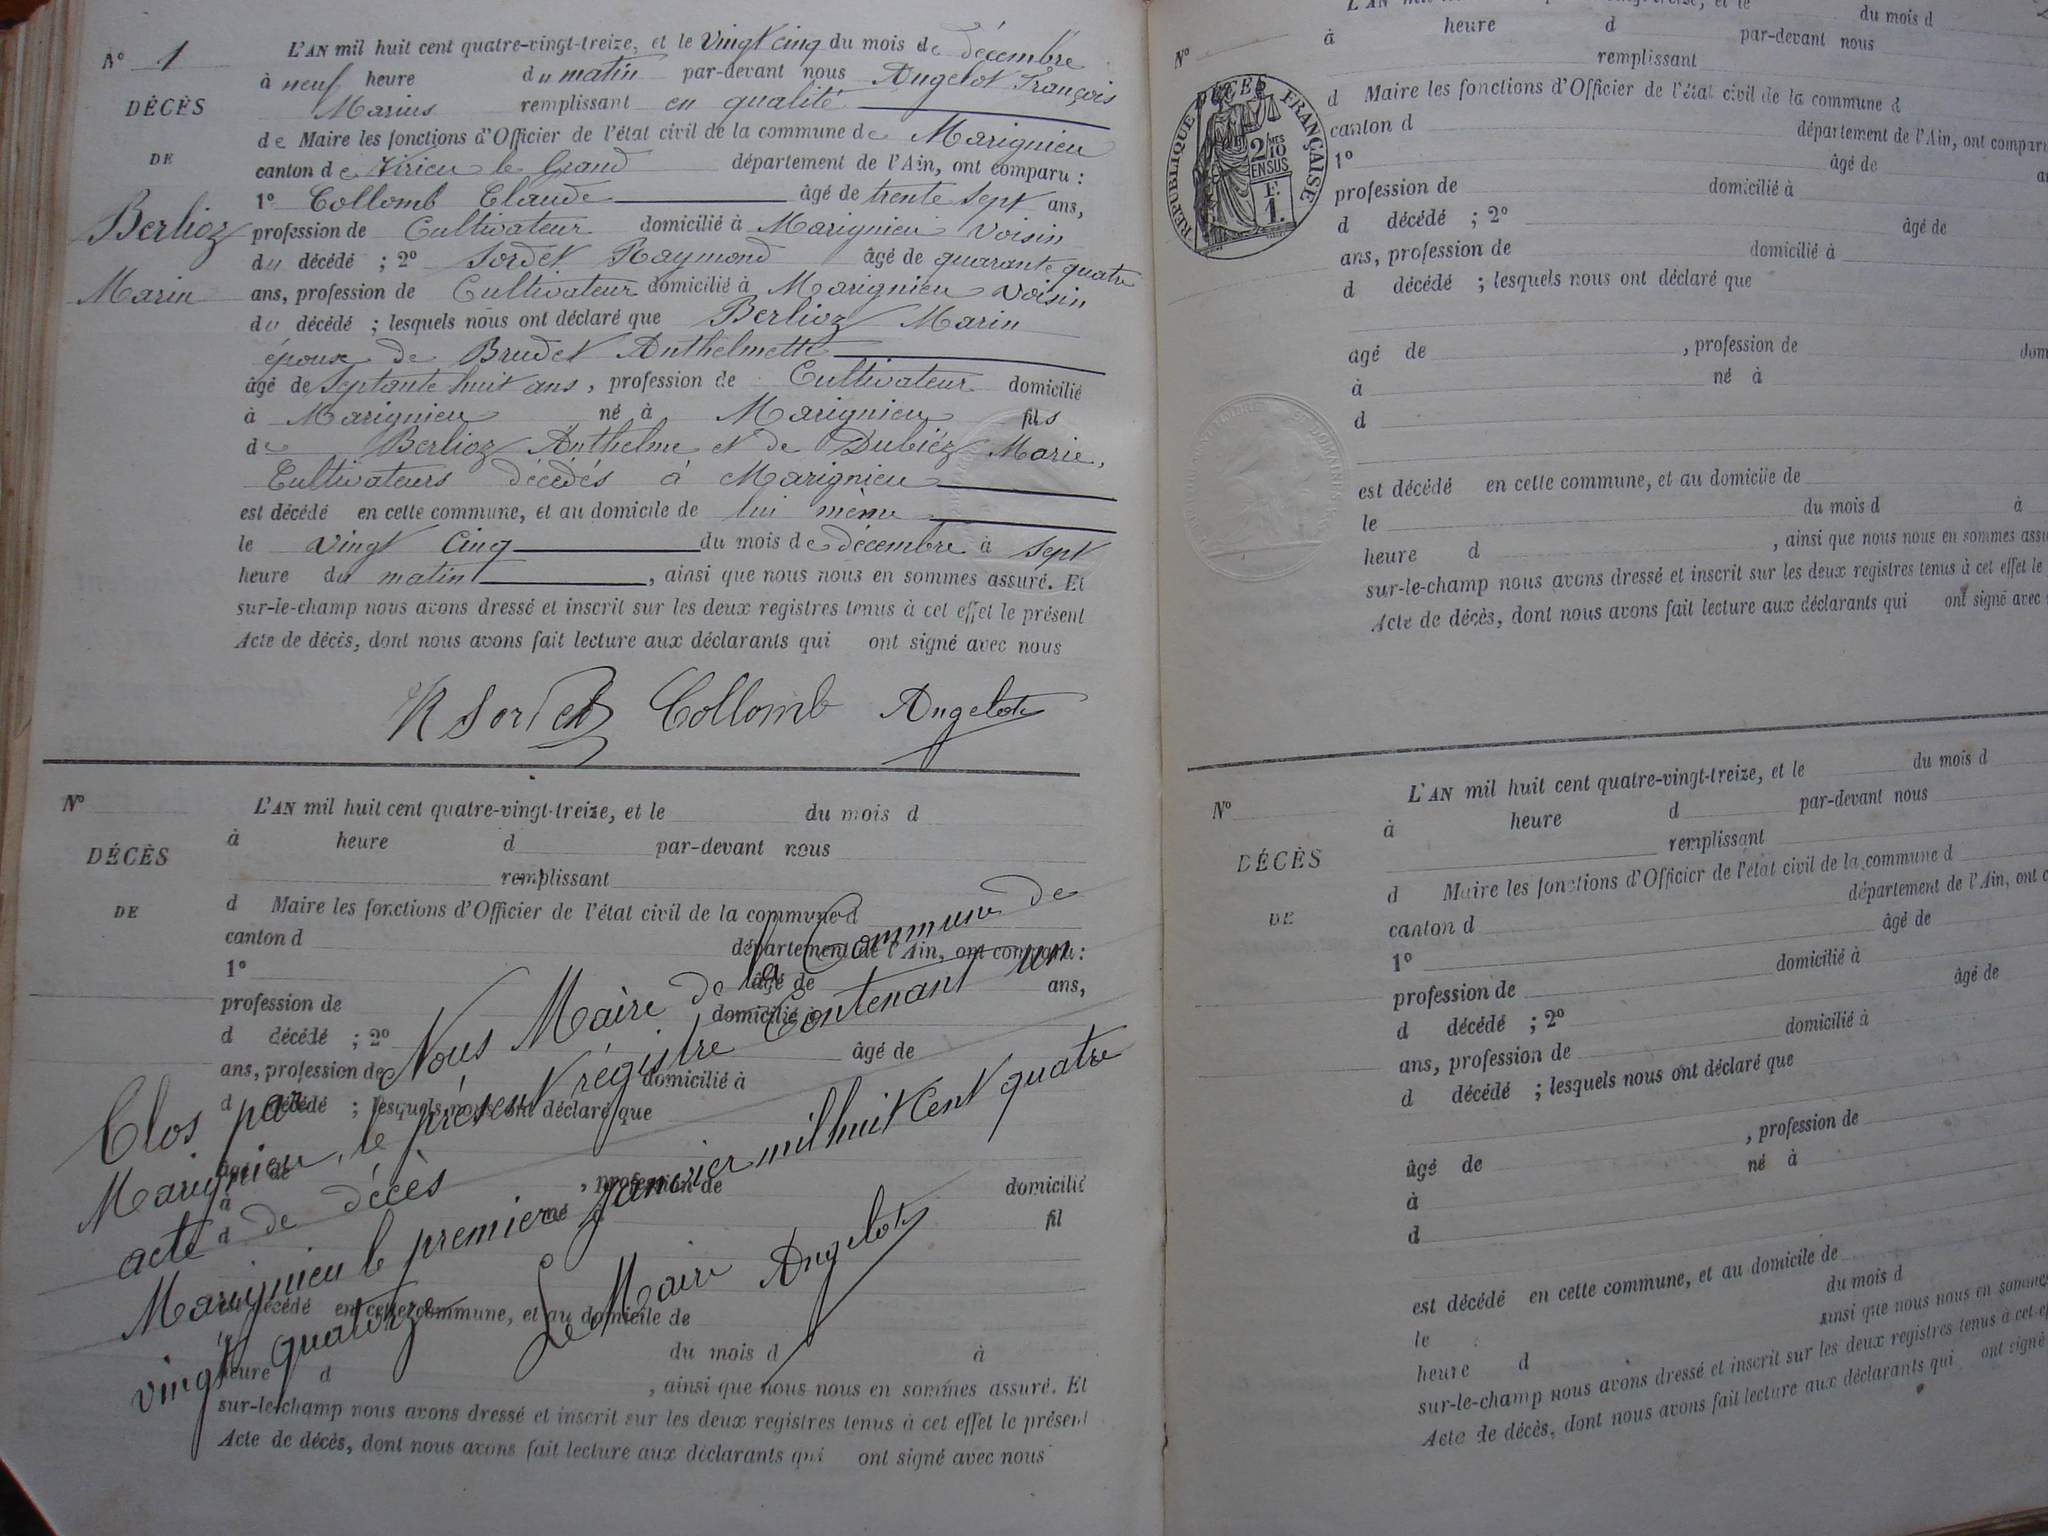 N° 1
DÉCÈS
DE
Berlioz
Marin
L'AN mil huit cent quatre-vingt-treize, et le Vingt cinq du mois de décembre
à neuf heure du matin par-devant nous Angelot François
Marius remplissant en qualité
de Maire les fonctions d'Officier de l'état civil de la commune de Marignieu
canton de Virieu le Grand département de l'Ain, ont comparu :
1° Collomb Claude âgé de trente sept ans,
profession de Cultivateur domicilié à Marignieu voisin
du décédé ; 2° Sordet Raymond âgé de quarante quatre
ans, profession de Cultivateur domicilié à Marignieu voisin
du décédé ; lesquels nous ont déclaré que Berlioz Marin
époux de Brudet Anthelmette
âgé de septante huit ans, profession de Cultivateur domicilié
à Marignieu né à Marignieu fils
de Berlioz Anthelme et de Dubiéz Marie,
Cultivateurs décédés à Marignieu
est décédé en cette commune, et au domicile de lui même
le vingt cinq du mois de décembre à sept
heure du matin, ainsi que nous nous en sommes assuré. Et
sur-le-champ nous avons dressé et inscrit sur les deux registres tenus à cet effet le présent
Acte de décès, dont nous avons fait lecture aux déclarants qui ont signé avec nous
R Sordet Collomb Angelot
N°
DÉCÈS
DE
L'AN mil huit cent quatre-vingt-treize, et le du mois d
à heure d par-devant nous
remplissant
d Maire les fonctions d'Officier de l'état civil de la commune d
canton d département de l'Ain, ont comparu :
1° âgé de ans,
profession de domicilié à
d décédé ; 2° âgé de
ans, profession de domicilié à
d décédé ; lesquels nous ont déclaré que
âgé de , profession de domicilié
à né à
d fil
est décédé en cette commune, et au domicile de
le du mois d à
heure d , ainsi que nous nous en sommes assuré. Et
sur-le-champ nous avons dressé et inscrit sur les deux registres tenus à cet effet le présent
Acte de décès, dont nous avons fait lecture aux déclarants qui ont signé avec nous
Clos par Nous Maire de la Commune de
Marignieu, le présent régistre Contenant un
acte de décès
Marignieu le premier Janvier mil huit Cent quatre
vingt quatorze
Le Maire Angelot
N°
DÉCÈS
RÉPUBLIQUE FRANÇAISE
2/10 MES
EN SUS
F.
1.
L'AN mil huit cent quatre-vingt-treize, et le du mois d
à heure d par-devant nous
remplissant
d Maire les fonctions d'Officier de l'état civil de la commune d
canton d département de l'Ain, ont comparu
1° âgé de
profession de domicilié à
d décédé ; 2° âgé de
ans, profession de domicilié à
d décédé ; lesquels nous ont déclaré que
âgé de , profession de dom
à né à
d
est décédé en cette commune, et au domicile de
le du mois d à
heure d , ainsi que nous nous en sommes assu
sur-le-champ nous avons dressé et inscrit sur les deux registres tenus à cet effet le
Acte de décès, dont nous avons fait lecture aux déclarants qui ont signé avec
N°
DÉCÈS
DE
L'AN mil huit cent quatre-vingt-treize, et le du mois d
à heure d par-devant nous
remplissant
d Maire les fonctions d'Officier de l'état civil de la commune d
canton d département de l'Ain, ont c
1° âgé de
profession de domicilié à
d décédé ; 2° âgé de
ans, profession de domicilié à
d décédé ; lesquels nous ont déclaré que
âgé de , profession de
à né à
d
est décédé en cette commune, et au domicile de
le du mois d
heure d ainsi que nous nous en sommes
sur-le-champ nous avons dressé et inscrit sur les deux registres tenus à cet ef
Acte de décès, dont nous avons fait lecture aux déclarants qui ont signé